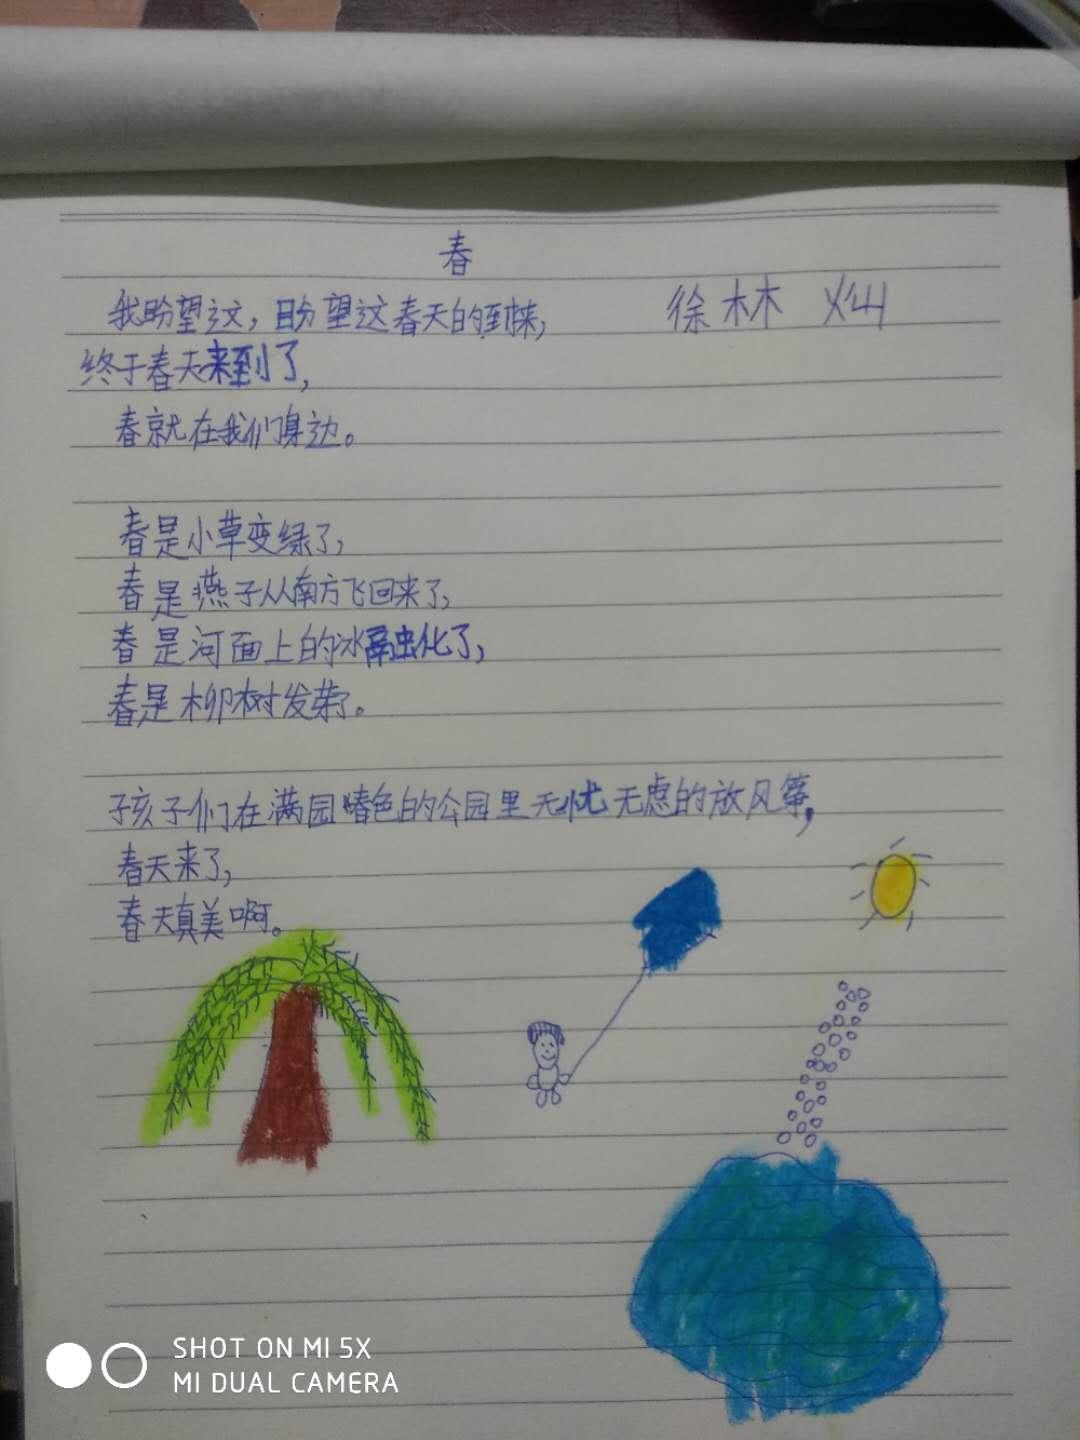 春
我盼望这,盼望这春天的到来,
徐林灿
终于春天来到了,
春就在我们身边。
春是小草变绿了,
春是燕子从南方飞回来了,
春是河面上的冰融化了,
春是柳树发芽了。
孩子们在满园春色的公园里无忧无虑的放风筝,
春天来了,
春天真美啊。
SHOT ON MI 5X
MI DUAL CAMERA